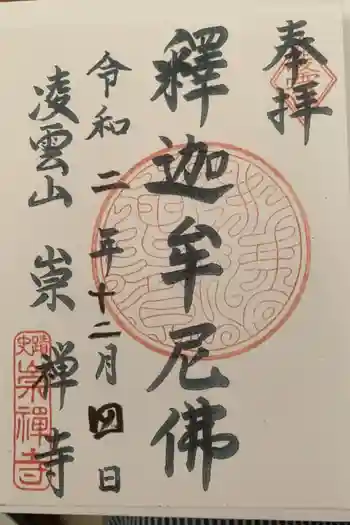 奉拝
釋迦牟尼佛
令和二年十二月四日
凌雲山 崇禅寺
史跡
崇禪寺